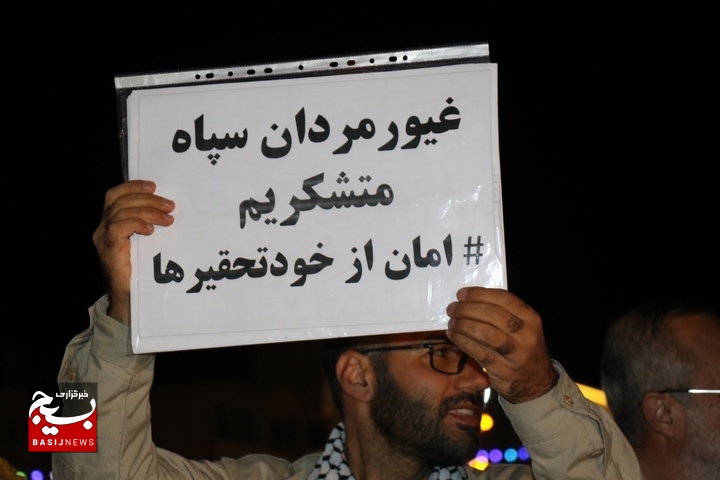 غیورمردان سپاه
متشکریم
# امان از خودتحقیرها
خبرگزاری
بسیج
BASIJNEWS